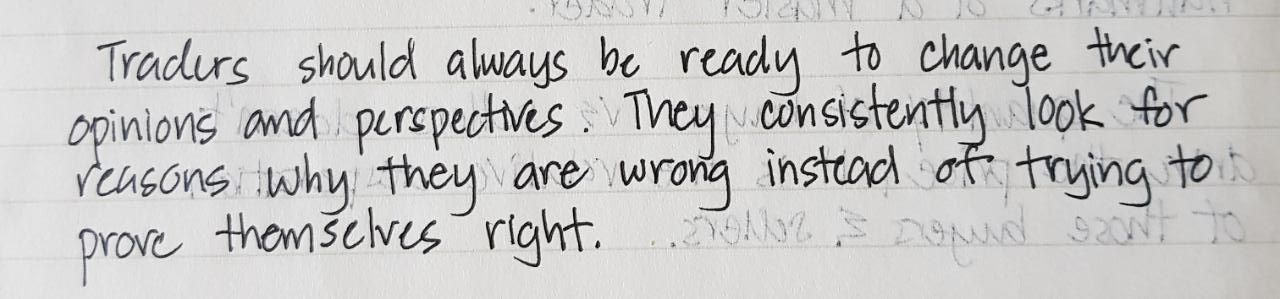 Traders should always be ready to change their
opinions and perspectives. They consistently look for
reasons why they are wrong instead of trying to
prove themselves right.